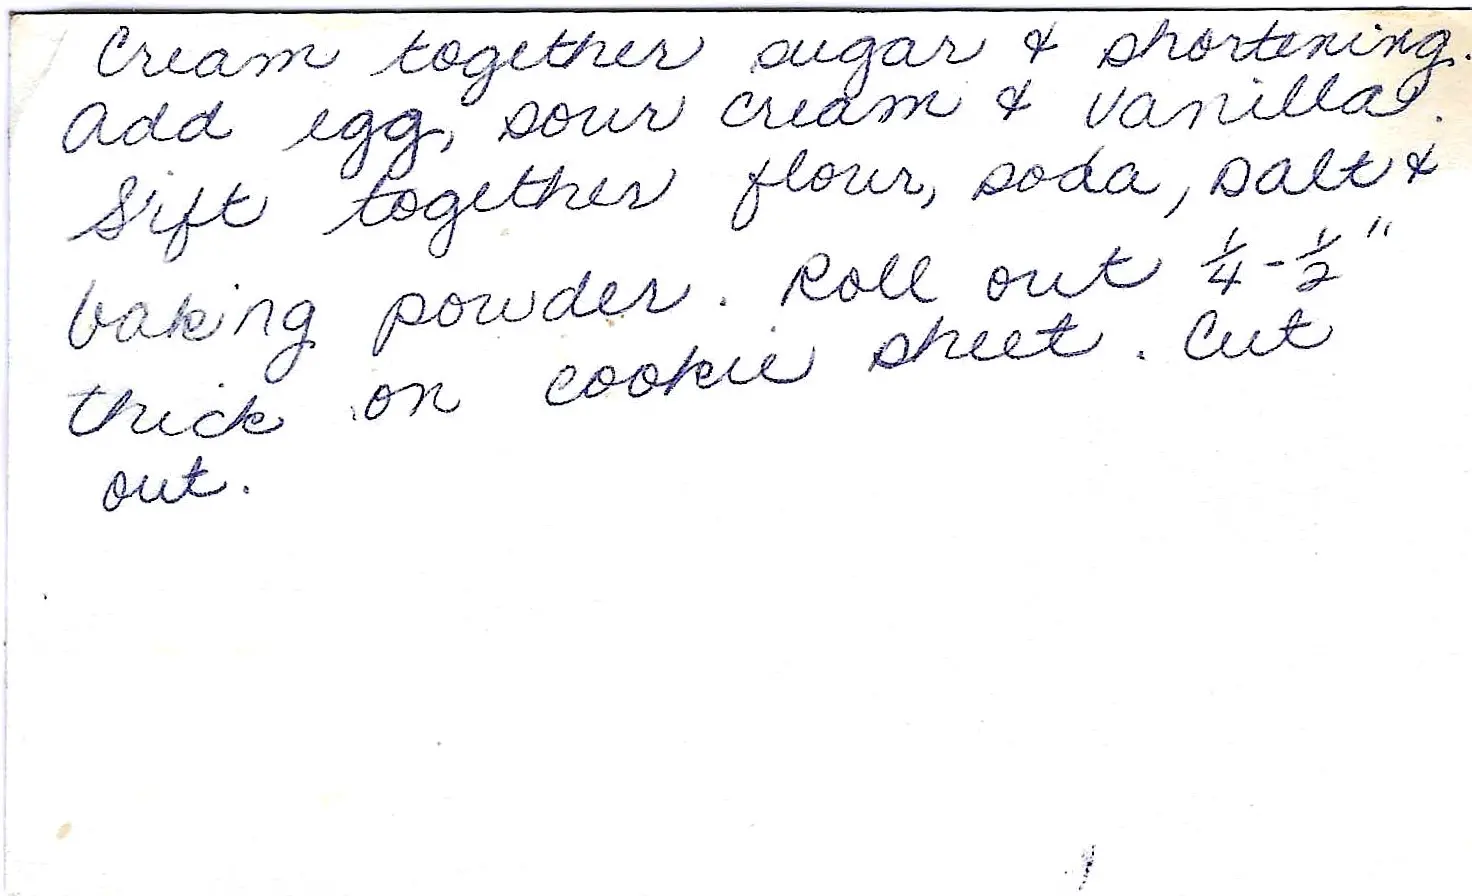 Cream together sugar & shortening.
Add egg, sour cream & vanilla.
Sift together flour, soda, salt &
baking powder. Roll out 1/4-1/2"
thick on cookie sheet. Cut
out.